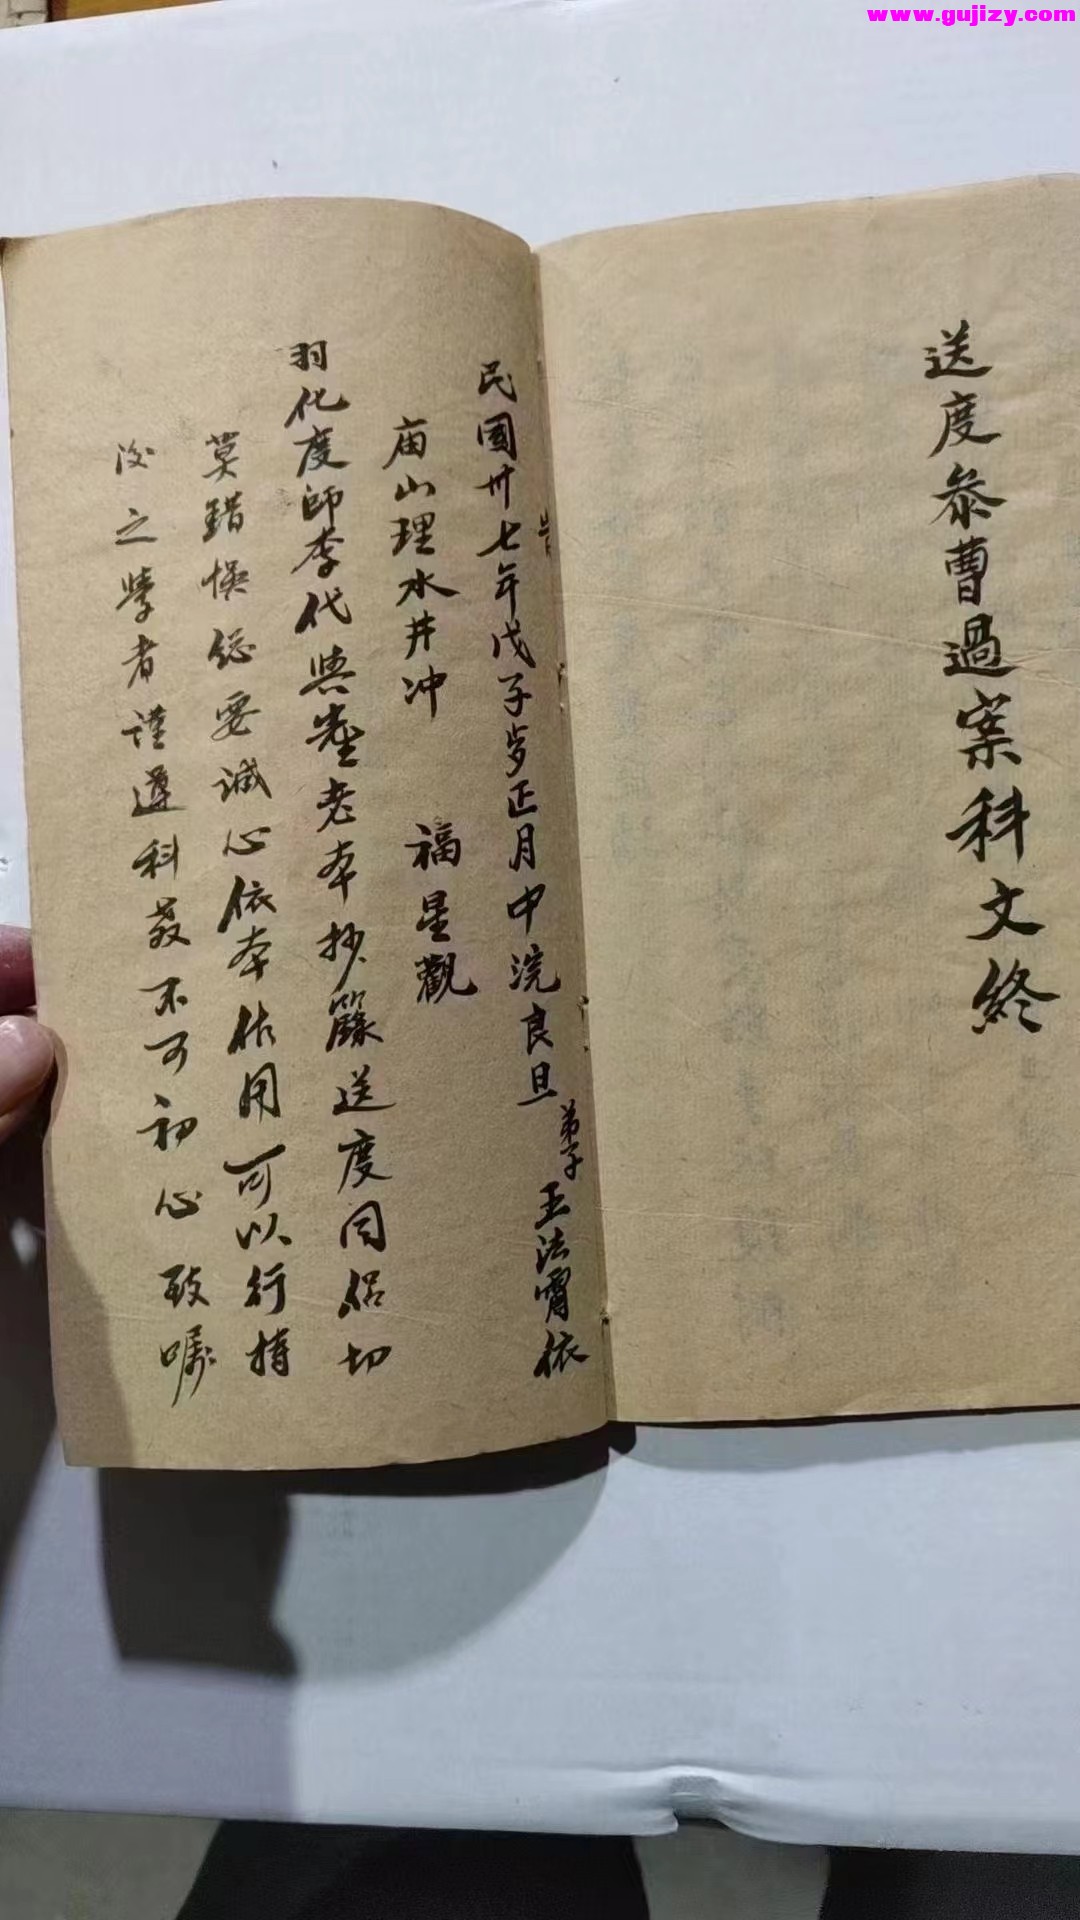 www.gujizy.com
送度叅曹過案科文終
民國卅七年戊子岁正月中浣良旦 弟子 王法霄依
庙山理水井冲 福星觀
羽化度師李代興老本抄籙送度同侶切
莫錯悞総要誠心依本作用可以行持
後之學者謹遵科教不可初心致嘱